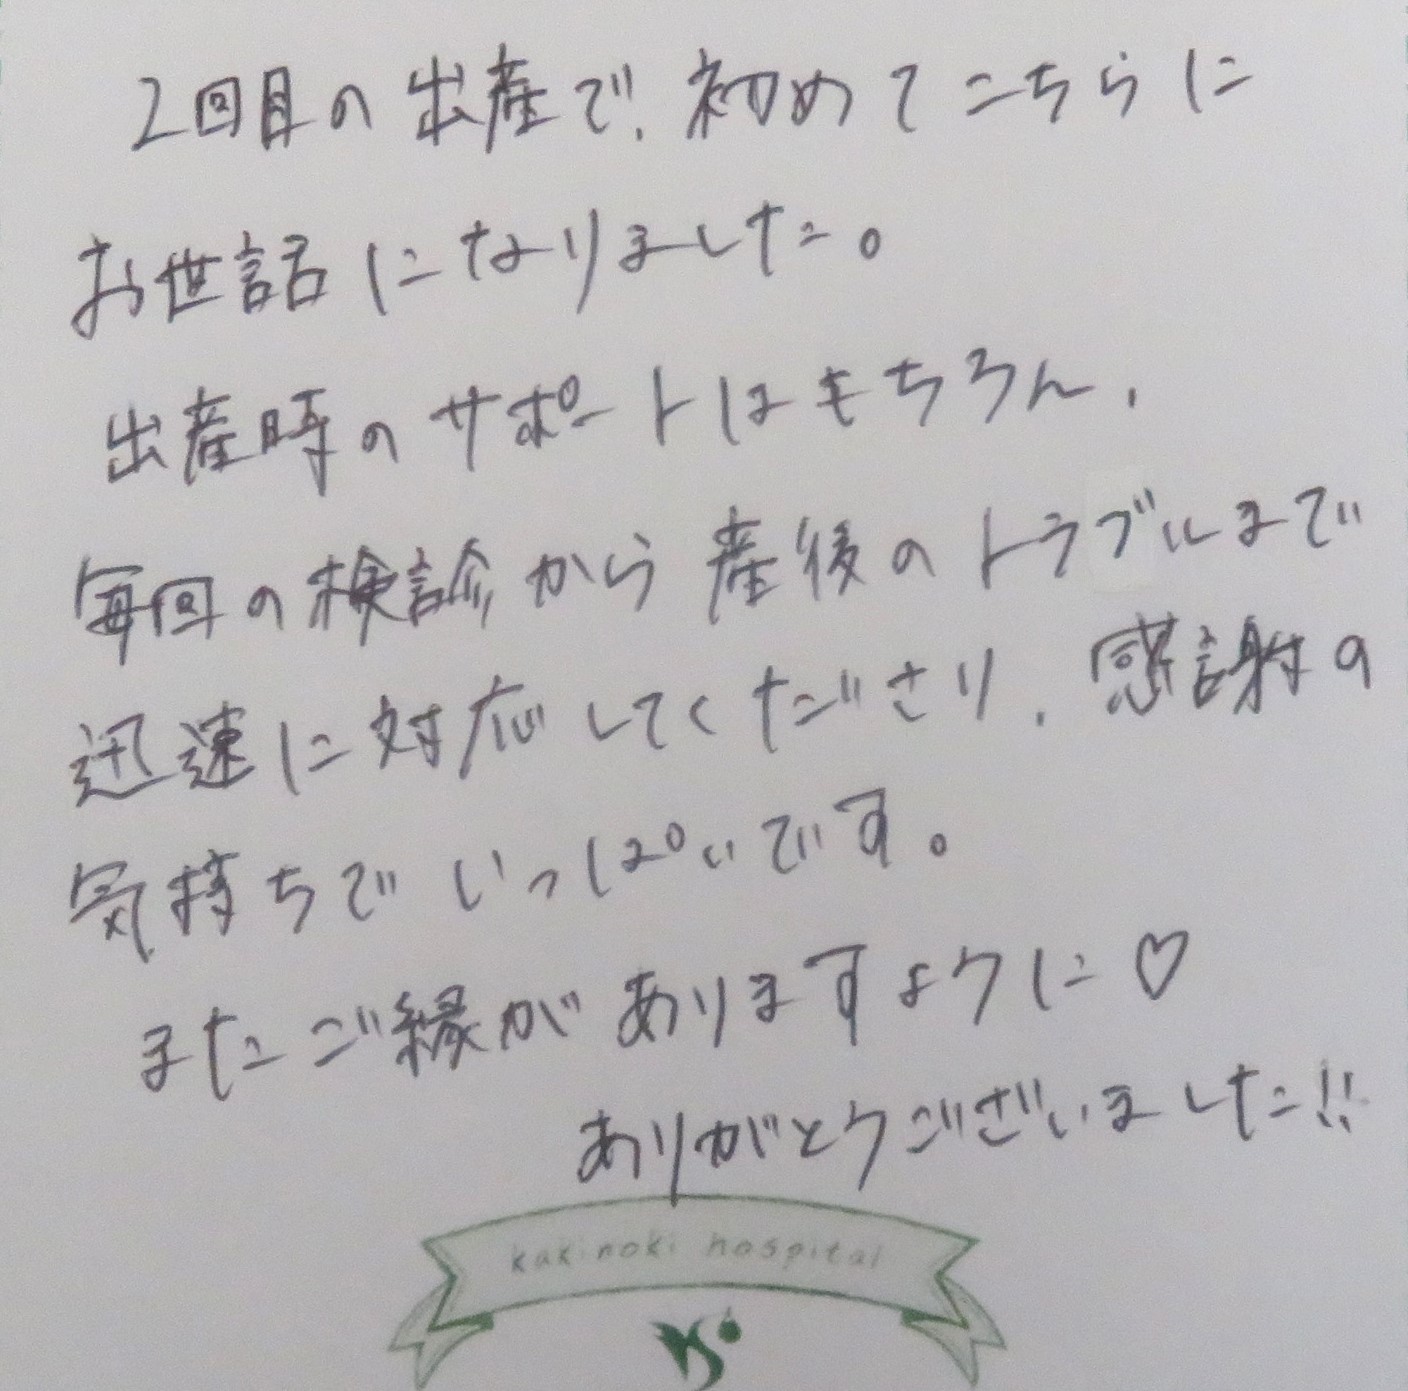 2回目の出産で、初めてこちらに
お世話になりました。
出産時のサポートはもちろん、
毎回の検診から産後のトラブルまで
迅速に対応してくださり、感謝の
気持ちでいっぱいです。
またご縁がありますように♡
ありがとうございました!!
kakinoki hospital